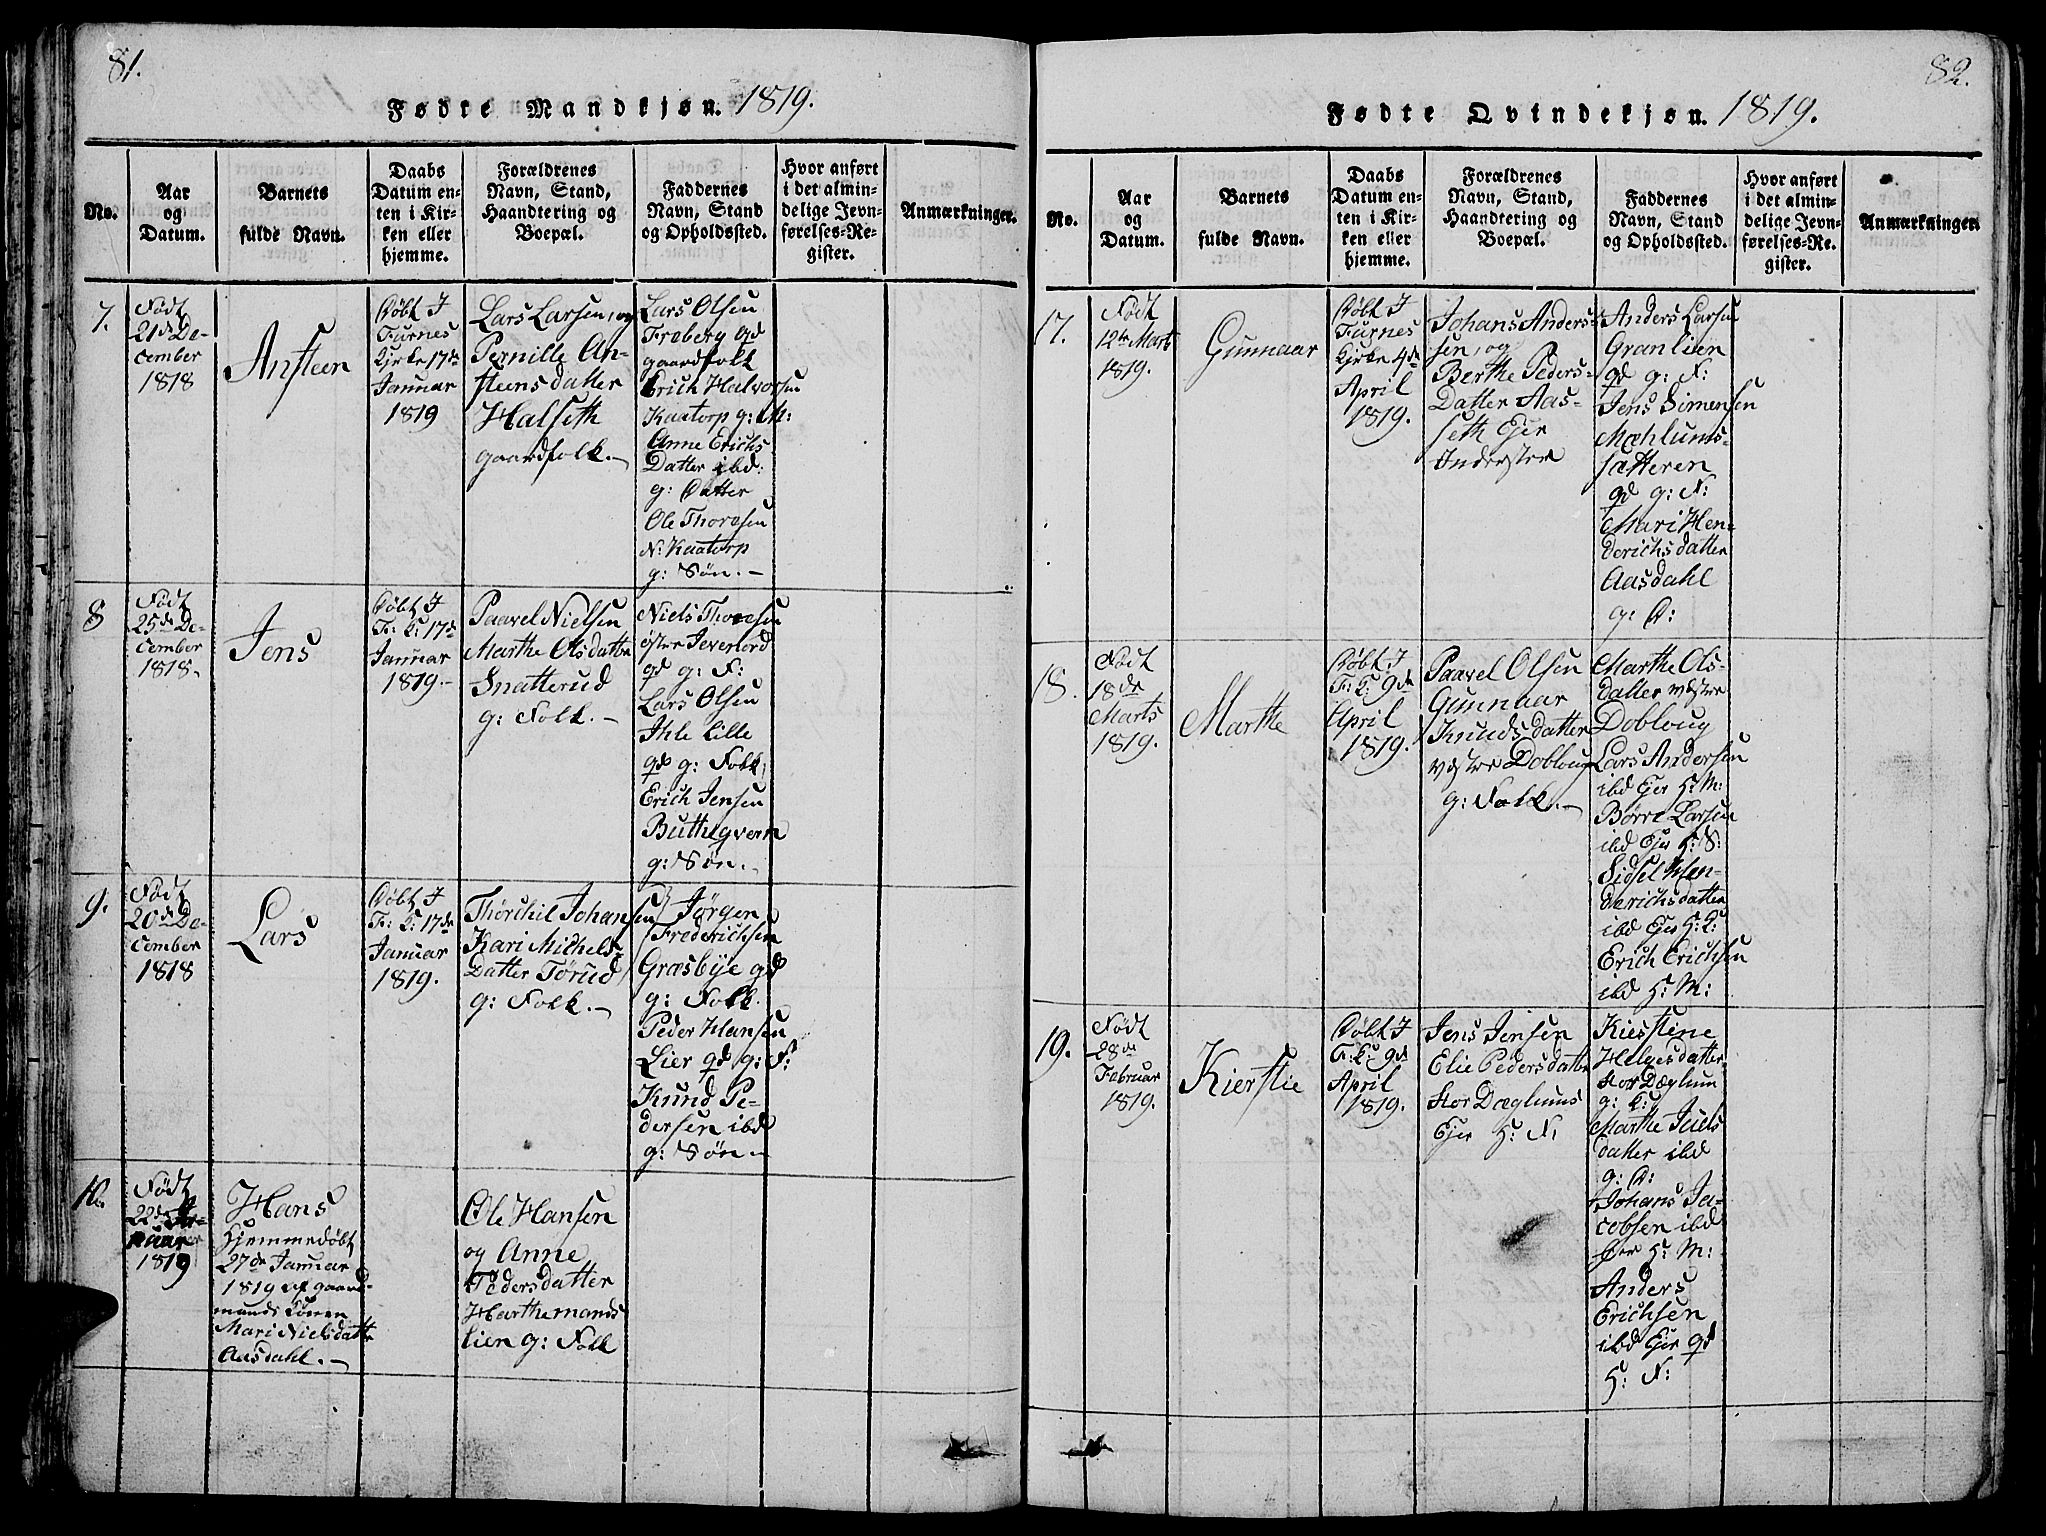 81.
Fødte Mandkjøn. 1819.
No.
Aar
og
Datum.
Barnets
fulde Navn.
Daabs
Datum en-
ten i Kir-
ken eller
hjemme.
Forældrenes
Navn, Stand,
Haandtering og
Boepæl.
Faddernes
Navn, Stand
og Opholdssted.
Hvor anført
i det almin-
delige Jevn-
førelses-Re-
gister.
Anmærkninger.
7.
Født
21de De-
cember
1818
Ansteen
Døbt I
Furnes
Kirke 17de
Januar
1819
Lars Larsen, og
Pernille An-
steensdatter
Halseth
gaardfolk.-
Lars Olsen
Froberg qd
gaardfolk
Erich Halvorsen
Kaatorp g: M:
Anne Erichs
Datter ibd:
g: Datter
Ole Thoresen
N: Kaatorp
g: Søn.-
8
Født
25de De-
cember
1818.
Jens
Døbt I
F: K: 17de
Januar
1819.-
Paavel Nielsen
Marthe Olsdatter
Snatterud
g: Folk.-
Niels Thoresen
øster Jevenord
qd g: F:
Lars Olsen
Ihle Lille
qd g: Folk,
Erich Jensen
Butthqvern
g: Søn.-
9.
Født
20de De-
cember
1818
Lars
Døbt I
F: K: 17de
Januar
1819.
Thorchil Johansen
Kari Michels-
Datter Torud
g: Folk.-
Jørgen
Frederichsen
Græsbye qd
g: Folk.
Peder Hansen
Lier qd g: F:
Knud Pe-
dersen ibd
g: Søn.-
10.
Født
22de Ja-
nuar
1819
Hans
Hjemmedøbt
27de Januar
1819 af gaard-
mands Konen
Mari Nielsdatter
Aasdahl.-
Ole Hansen
og Anne
Pedersdatter
Harthemands
lien g: Folk
82.
Fødte Qvindekjøn. 1819.
No.
Aar
og
Datum.
Barnets
fulde Navn.
Daabs
Datum en-
ten i Kir-
ken eller
hjemme.
Forældrenes
Navn, Stand,
Haandtering og
Boepæl.
Faddernes
Navn, Stand
og Opholdssted.
Hvor anført
i det almin-
delige Jevn-
førelses-Re-
gister.
Anmærkninger.
17.
Født
12te Marts
1819.
Gunnaar
Døbt I
Furnes
Kirke 4de
April
1819.
Johans Anders-
sen, og
Berthe Peders-
Datter Aas-
seth Ejer
Inderster
Anders Larsen
Granlien
qd g: F:
Jens Simensen
Mæhlums-
sætteren
qd g: F:
Mari Hen-
derichsdatter
Aasdahl
g: D:
18.
Født
18de
Marts
1819.
Marthe
Døbt I
F: K: 9de
April
1819.
Paavel Olsen
Gunnaar
Knudsdatter
væstre Dobloug
g: Folk.-
Marthe Ols-
datter væstre
Dobloug
Lars Andersen
ibd Ejer H: M:
Børre Larsen
ibd Ejer H: S:
Sidsel Hen-
derichsdatter
ibd Ejer H: K:
Erich Erichsen
ibd H: M:
19.
Født
28de
Februar
1819.
Kierstie
Døbt I
F: K: 9de
April
1819.
Jens Jensen
Elie Pedersdatter
Stor Dæglums
Ejer H: F:
Kiestine
Helgesdatter
Stor Dæglum
g: K:
Marthe Juels
datter ibd
g: D:
Johans Ja-
cobsen ibd
Ejer H: M:
Anders
Erichsen
ibd Ejer qd
H: F: